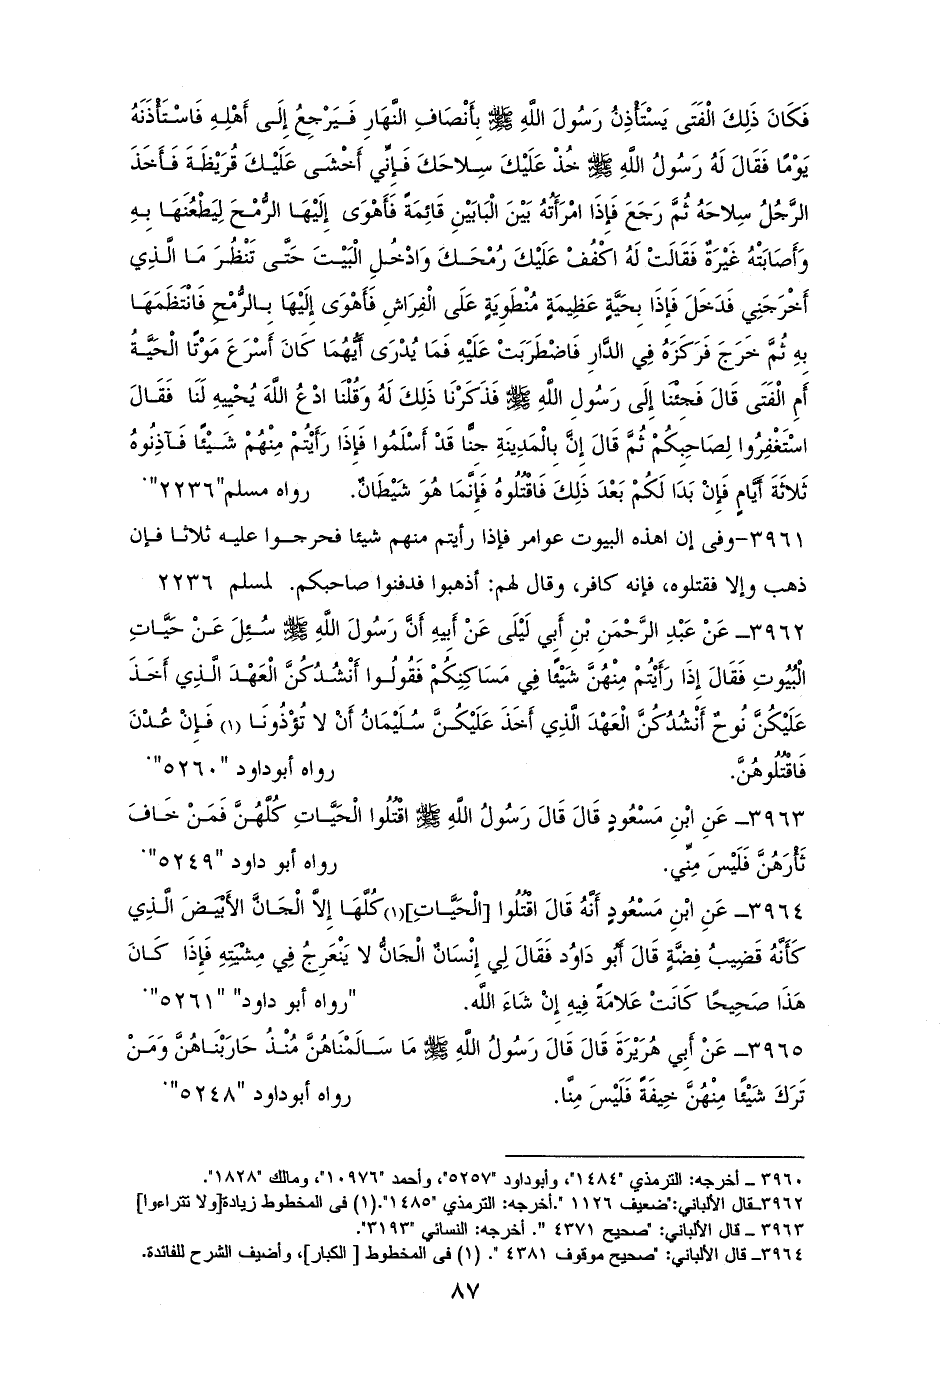 فَكَانَ ذَلِكَ الْفَتَى يَسْتَأْذِنُ رَسُولَ اللَّهِ ﷺ بِأَنْصَافِ النَّهَارِ فَيَرْجِعُ إِلَى أَهْلِهِ فَاسْتَأْذَنَهُ
يَوْمًا فَقَالَ لَهُ رَسُولُ اللَّهِ ﷺ خُذْ عَلَيْكَ سِلاحَكَ فَإِنِّي أَخْشَى عَلَيْكَ قُرَيْظَةَ فَأَخَذَ
الرَّجُلُ سِلاحَهُ ثُمَّ رَجَعَ فَإِذَا امْرَأَتُهُ بَيْنَ الْبَابَيْنِ قَائِمَةً فَأَهْوَى إِلَيْهَا الرُّمْحَ لِيَطْعُنَهَا بِهِ
وَأَصَابَتْهُ غَيْرَةٌ فَقَالَتْ لَهُ اكْفُفْ عَلَيْكَ رُمْحَكَ وَادْخُلِ الْبَيْتَ حَتَّى تَنْظُرَ مَا الَّذِي
أَخْرَجَنِي فَدَخَلَ فَإِذَا بِحَيَّةٍ عَظِيمَةٍ مُنْطَوِيَةٍ عَلَى الْفِرَاشِ فَأَهْوَى إِلَيْهَا بِالرُّمْحِ فَانْتَظَمَهَا
بِهِ ثُمَّ خَرَجَ فَرَكَزَهُ فِي الدَّارِ فَاضْطَرَبَتْ عَلَيْهِ فَمَا يُدْرَى أَيُّهُمَا كَانَ أَسْرَعَ مَوْتًا الْحَيَّةُ
أَمِ الْفَتَى قَالَ فَجِئْنَا إِلَى رَسُولِ اللَّهِ ﷺ فَذَكَرْنَا ذَلِكَ لَهُ وَقُلْنَا ادْعُ اللَّهَ يُحْيِيهِ لَنَا فَقَالَ
اسْتَغْفِرُوا لِصَاحِبِكُمْ ثُمَّ قَالَ إِنَّ بِالْمَدِينَةِ جِنًّا قَدْ أَسْلَمُوا فَإِذَا رَأَيْتُمْ مِنْهُمْ شَيْئًا فَآذِنُوهُ
ثَلاثَةَ أَيَّامٍ فَإِنْ بَدَا لَكُمْ بَعْدَ ذَلِكَ فَاقْتُلُوهُ فَإِنَّمَا هُوَ شَيْطَانٌ. رواه مسلم"٢٢٣٦".
٣٩٦١-وفى إن اهذه البيوت عوامر فإذا رأيتم منهم شيئا فحرجوا عليه ثلاثا فإن
ذهب وإلا فقتلوه، فإنه كافر، وقال لهم: أذهبوا فدفنوا صاحبكم. لمسلم ٢٢٣٦
٣٩٦٢ـ عَنْ عَبْدِ الرَّحْمَنِ بْنِ أَبِي لَيْلَى عَنْ أَبِيهِ أَنَّ رَسُولَ اللَّهِ ﷺ سُئِلَ عَنْ حَيَّاتِ
الْبُيُوتِ فَقَالَ إِذَا رَأَيْتُمْ مِنْهُنَّ شَيْئًا فِي مَسَاكِنِكُمْ فَقُولُوا أَنْشُدُكُنَّ الْعَهْدَ الَّذِي أَخَذَ
عَلَيْكُنَّ نُوحٌ أَنْشُدُكُنَّ الْعَهْدَ الَّذِي أَخَذَ عَلَيْكُنَّ سُلَيْمَانُ أَنْ لا تُؤْذُونَا (١) فَإِنْ عُدْنَ
فَاقْتُلُوهُنَّ. رواه أبوداود "٥٢٦٠".
٣٩٦٣ـ عَنِ ابْنِ مَسْعُودٍ قَالَ قَالَ رَسُولُ اللَّهِ ﷺ اقْتُلُوا الْحَيَّاتِ كُلَّهُنَّ فَمَنْ خَافَ
ثَأْرَهُنَّ فَلَيْسَ مِنِّي. رواه أبو داود "٥٢٤٩".
٣٩٦٤ـ عَنِ ابْنِ مَسْعُودٍ أَنَّهُ قَالَ اقْتُلُوا [الْحَيَّاتِ](١)كُلَّهَا إِلاَّ الْجَانَّ الأَبْيَضَ الَّذِي
كَأَنَّهُ قَضِيبُ فِضَّةٍ قَالَ أَبُو دَاوُد فَقَالَ لِي إِنْسَانٌ الْجَانُّ لا يَنْعَرِجُ فِي مِشْيَتِهِ فَإِذَا كَانَ
هَذَا صَحِيحًا كَانَتْ عَلامَةً فِيهِ إِنْ شَاءَ اللَّه. "رواه أبو داود" "٥٢٦١".
٣٩٦٥ـ عَنْ أَبِي هُرَيْرَةَ قَالَ قَالَ رَسُولُ اللَّهِ ﷺ مَا سَالَمْنَاهُنَّ مُنْذُ حَارَبْنَاهُنَّ وَمَنْ
تَرَكَ شَيْئًا مِنْهُنَّ خِيفَةً فَلَيْسَ مِنَّا. رواه أبوداود "٥٢٤٨".
٣٩٦٠ ـ أخرجه: الترمذي "١٤٨٤"، وأبوداود "٥٢٥٧"، وأحمد "١٠٩٧٦"، ومالك "١٨٢٨".
٣٩٦٢ـقال الألباني:"ضعيف ١١٢٦ ".أخرجه: الترمذي "١٤٨٥".(١) فى المخطوط زيادة[ولا تتراءوا]
٣٩٦٣ ـ قال الألباني: "صحيح ٤٣٧١ ". أخرجه: النسائي "٣١٩٣".
٣٩٦٤ـ قال الألباني: "صحيح موقوف ٤٣٨١ ". (١) فى المخطوط [ الكبار]، وأضيف الشرح للفائدة.
٨٧